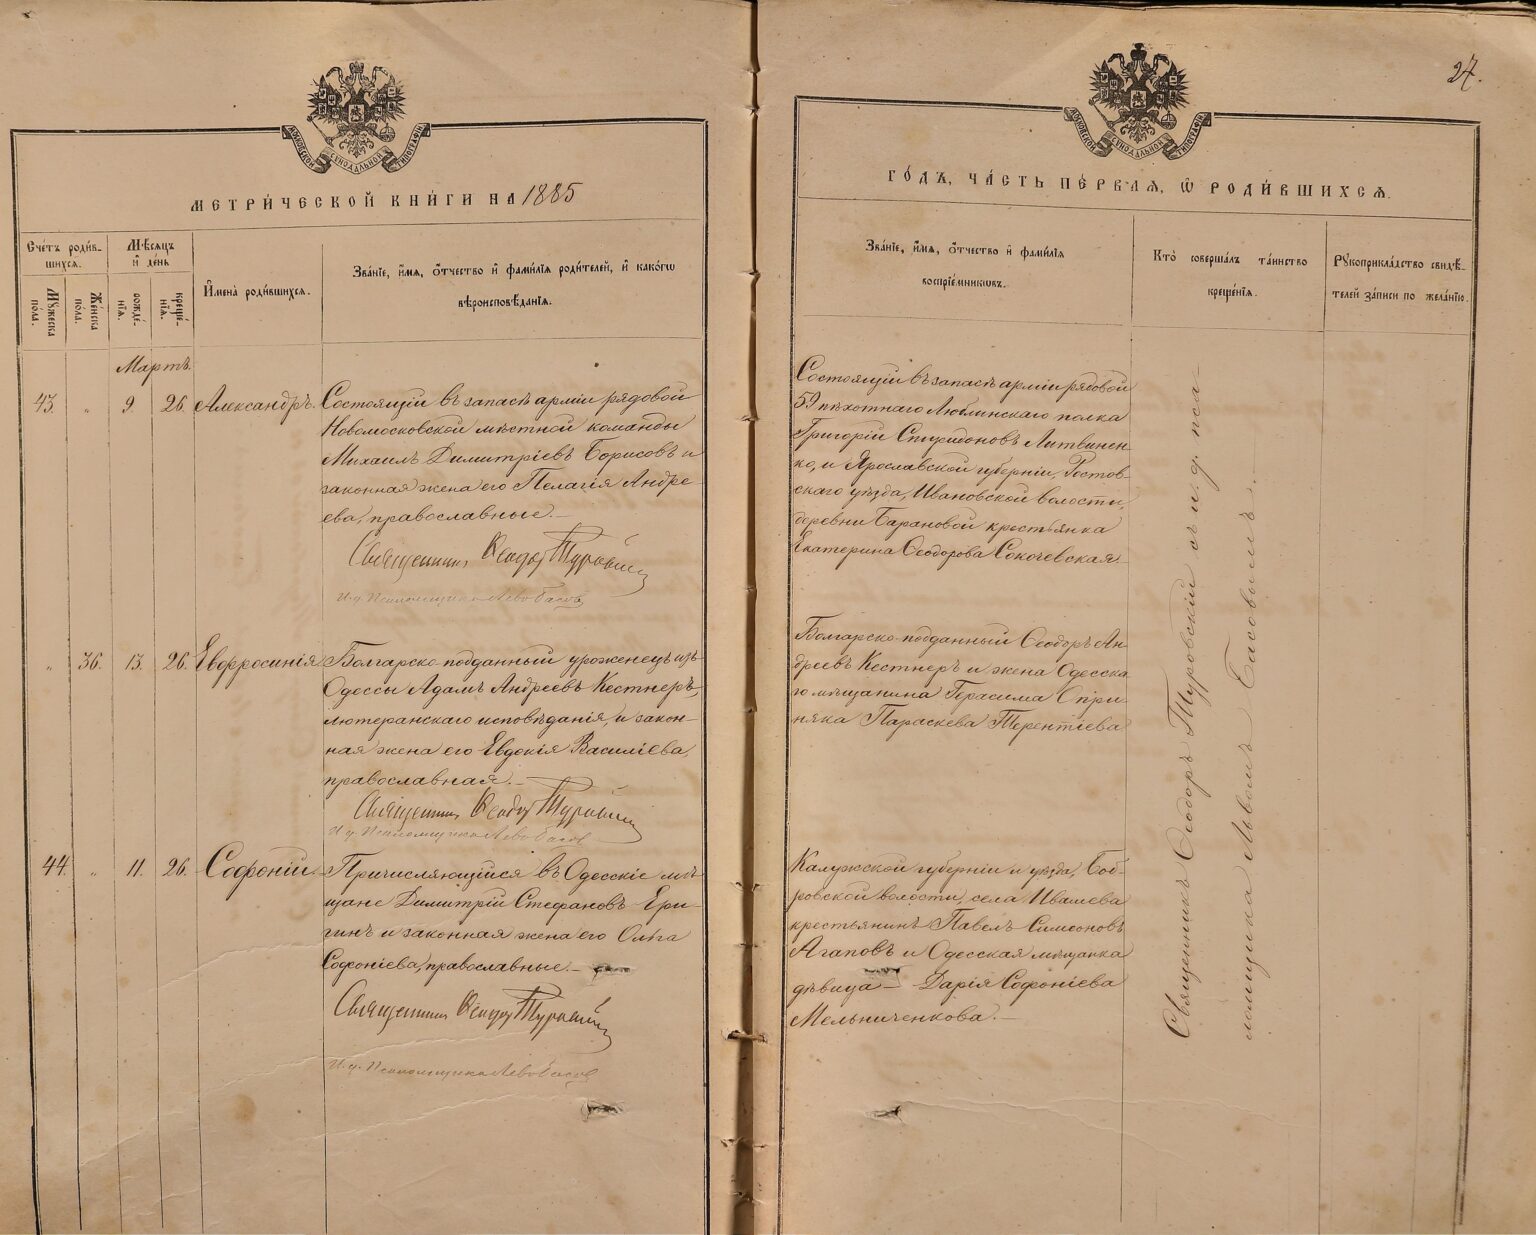 27.
МОСКОВСКОЙ СѴНОДАЛЬНОЙ ТИПОГРАФІИ
МЕТРИ́ЧЕСКОЙ КНИ́ГИ НА 1885
Сче́тъ роди́в-
шихся.
Му́жеска
по́ла.
Же́нска
по́ла.
Мѣ́сяцъ
и҆ де́нь
рожде́-
нїя.
креще́-
нїя.
И҆мена̀ роди́вшихся.
Зва́нїе, и҆́мя, ѻ҆́тчество и҆ фами́лїя роди́телей, и҆ како́гѡ
вѣроисповѣ́данїя.
Мартъ.
43. „ 9. 26. Александръ.
Состоящій въ запасѣ арміи рядовой
Новомосковской мѣстной команды
Михаилъ Димитріевъ Борисовъ и
законная жена его Пелагія Андре-
ева, православные.
Священникъ Ѳеодоръ Туровскій
И. д. Псаломщика Левъ Басовъ
„ 36. 13. 26. Евфросинія
Болгарско-подданный уроженецъ изъ
Одессы Адамъ Андреевъ Кестнеръ,
лютеранскаго исповѣданія, и закон-
ная жена его Евдокія Василіева,
православная.
Священникъ Ѳеодоръ Туровскій
И. д. Псаломщика Левъ Басов
44. „ 11. 26. Софоній.
Причисляющійся въ Одесскіе мѣ-
щане Димитрій Стефановъ Ери-
гинъ и законная жена его Ольга
Софоніева, православные.
Священникъ Ѳеодоръ Туровскій
И. д. Псаломщика Левъ Басов
МОСКОВСКОЙ СѴНОДАЛЬНОЙ ТИПОГРАФІИ
ГО́ДЪ, ЧА́СТЬ ПЕ́РВАЯ, Ѽ РОДИ́ВШИХСЯ.
Зва́нїе, и҆́мя, ѻ҆́тчество и҆ фами́лїя
воспрїе́мникѡвъ.
Кто̀ соверша́лъ та́инство
креще́нїя.
Рꙋкоприкла́дство свидѣ́-
телей за́писи по жела́нїю.
Состоящій въ запасѣ арміи рядовой
59 пѣхотнаго Люблинскаго полка
Григорій Спиридоновъ Литвинен-
ко, и Ярославской губерніи, Ростов-
скаго уѣзда, Ивановской волости,
деревни Барановой крестьянка
Екатерина Ѳеодорова Сокочевская.
Болгарско-подданный Ѳеодоръ Ан-
дреевъ Кестнеръ и жена Одесска-
го мѣщанина Герасима Опри-
няка Параскева Терентіева
Калужской губерніи и уѣзда, Боб-
ровской волости, села Ивашева
крестьянинъ Павелъ Симеоновъ
Агаповъ и Одесская мѣщанка
дѣвица Дарія Софоніева
Мельниченкова.
Священникъ Ѳеодоръ Туровскій съ и. д. пса-
ломщика Львомъ Басовымъ.